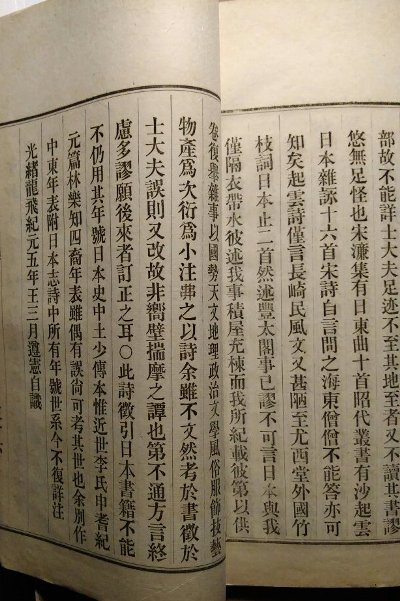 部故不能詳士大夫足迹不至其地至者又不讀其書謬
悠無足怪也宋濂集有日東曲十首昭代叢書有沙起雲
日本雜詠十六首宋詩自言問之海東僧僧不能答亦可
知矣起雲詩僅言長崎民風文又甚陋至尤西堂外國竹
枝詞日本止二首然述豐太閣事已謬不可言日本與我
僅隔衣帶水彼述我事積屋充棟而我所紀載彼第以供
卷復舉雜事以國勢天文地理政治文學風俗服飾技藝
物產爲次衍爲小注丳之以詩余雖不文然考於書徵於
士大夫誤則又改故非嚮壁揣摩之譚也第不通方言終
慮多謬願後來者訂正之耳〇此詩徵引日本書籍不能
不仍用其年號日本史中土少傳本惟近世李氏申耆紀
元篇林樂知四裔年表雖偶有誤尚可考其世也余別作
中東年表附日本志詩中所有年號世系今不復詳注
光緒龍飛紀元五年王三月遵憲自識